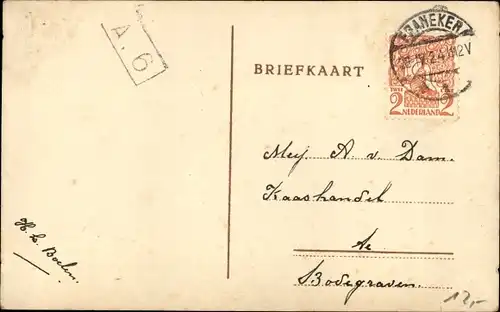 A. 6
BRIEFKAART
FRANEKER
24 12V
TWEE
2 2
NEDERLAND
Mej A v. Dam.
Kaashandel
te
Bodegraven.
H. S. Boelen.
12,-